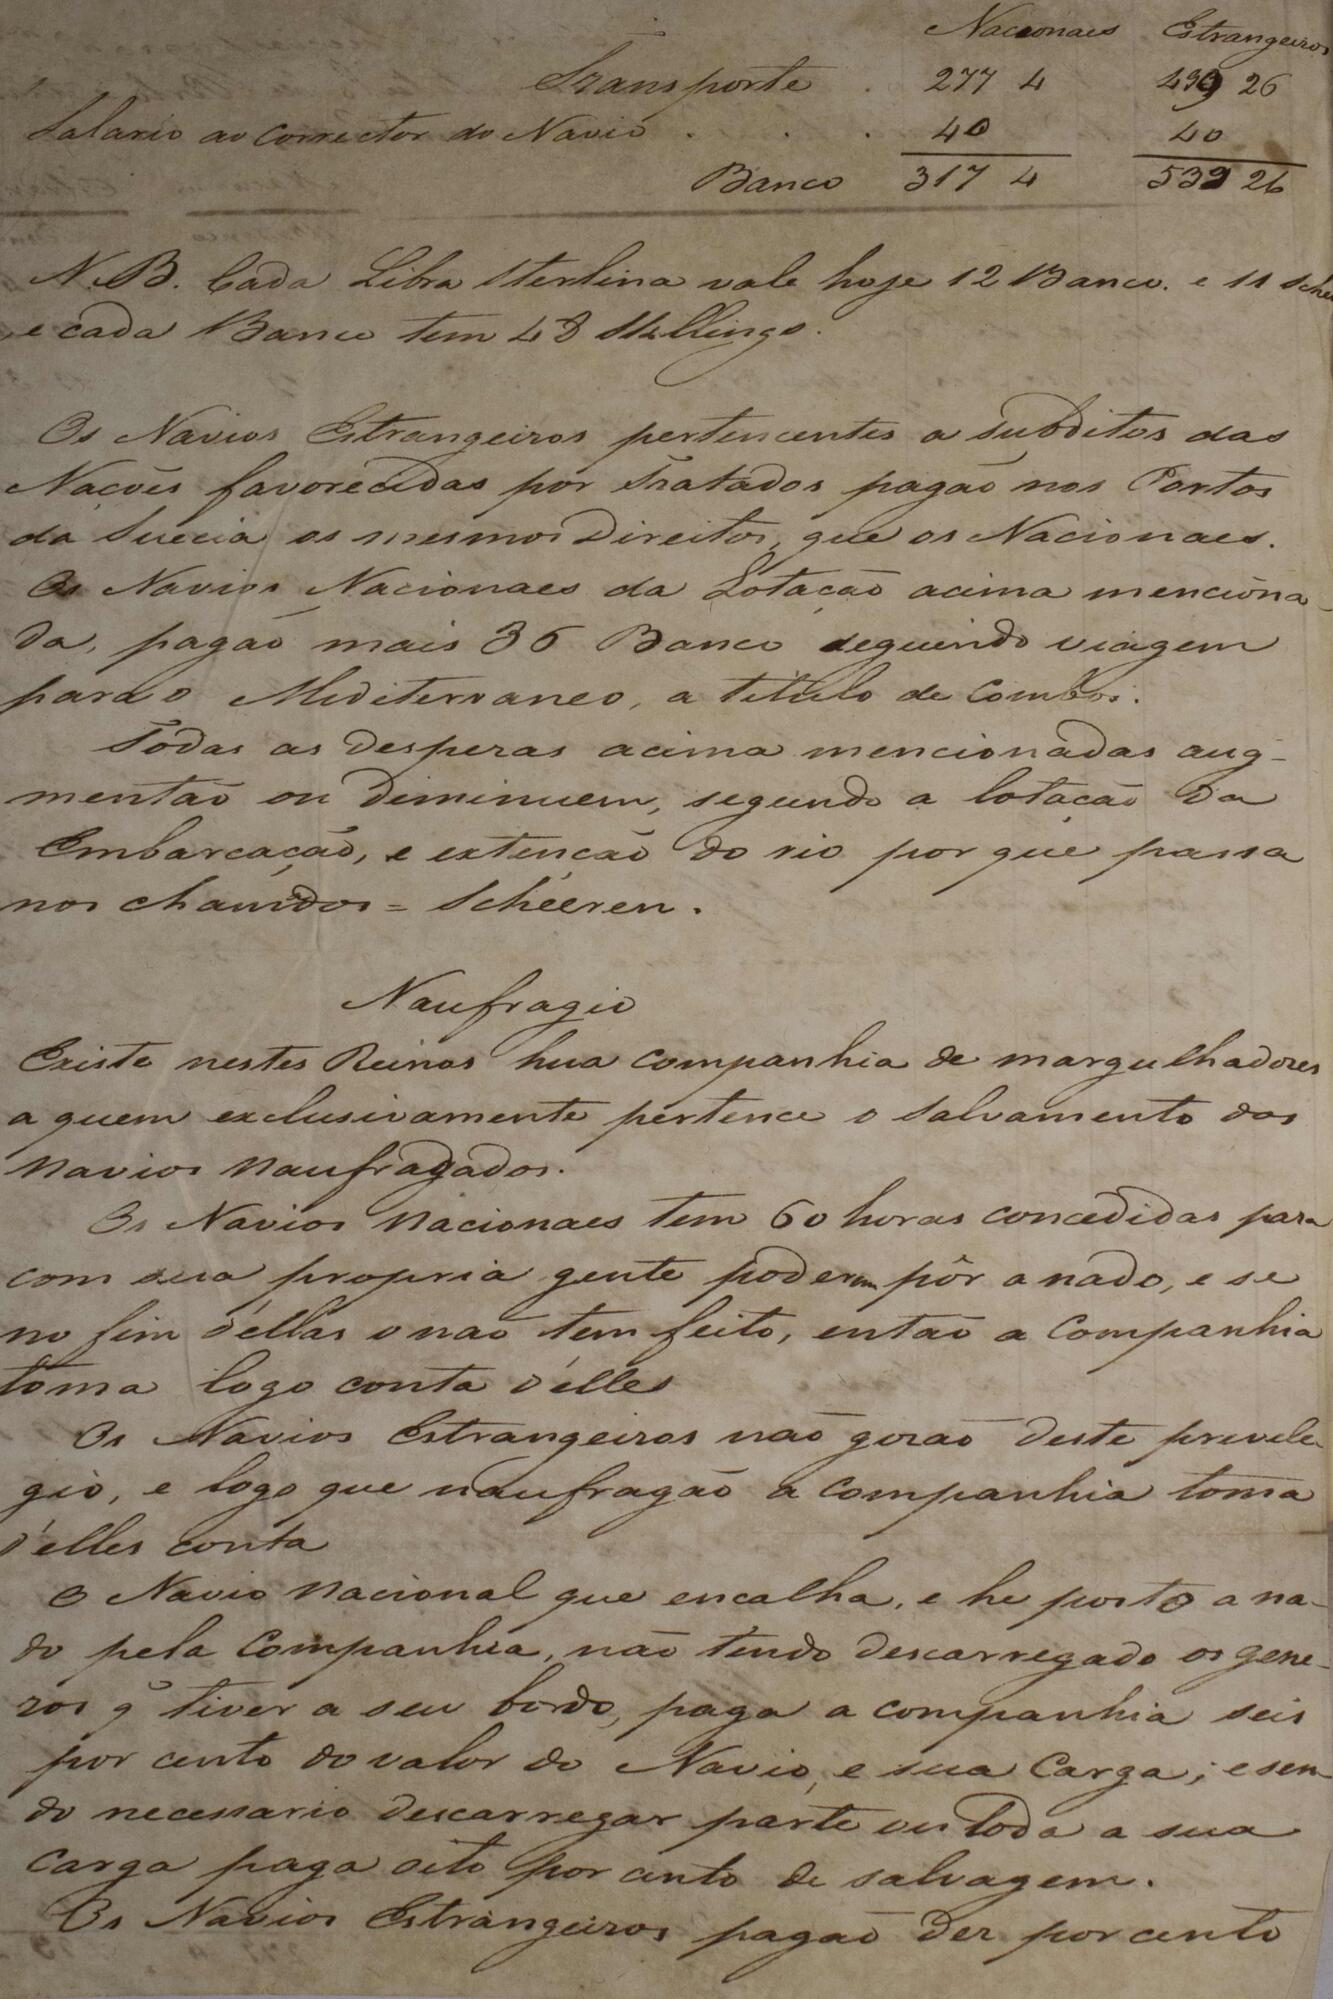 Nacionaes Estrangeiros
Transporte . 277 4 499 26
Salario ao Corrector do Navio . . . 40 40
Banco 317 4 539 26
N.B. Cada Libra Sterlina vale hoje 12 Banco. e 11 
e cada Banco tem 48 Skillings.
Os Navios Estrangeiros pertencentes a Subditos das
Nações favorecidas por Tratados pagão nos Portos
da Suecia os mesmos Direitos, que os Nacionaes.
Os Navios Nacionaes da Lotação acima menciona-
da, pagão mais 36 Banco seguindo viagem
para o Mediterraneo, a titulo de Comboi.
Todas as despezas acima mencionadas aug-
mentão ou Diminuem, segundo a lotação da
Embarcação, e extenção do rio por que passa
nos chamados = Schéeren.
Naufragio
Existe nestes Reinos hua companhia de margulhadores
a quem exclusivamente pertence o Salvamento dos
Navios Naufragados.
Os Navios Nacionaes tem 60 horas concedidas para
com sua propria gente poderem pôr a nado, e se
no fim d'ellas o não tem feito, então a Companhia
toma logo conta d'elles
Os Navios Estrangeiros não gozão deste previle-
gio, e logo que naufragão a Companhia toma
d'elles conta
O Navio Nacional que encalha, e he posto a na-
do pela Companhia, não tendo descarregado os gene-
ros q̃ tiver a seu bordo, paga a companhia seis
por cento do valor do Navio, e sua Carga; e sen-
do necessario descarregar parte ou toda a sua
Carga paga oito por cento de salvagem.
Os Navios Estrangeiros pagão Dez por cento